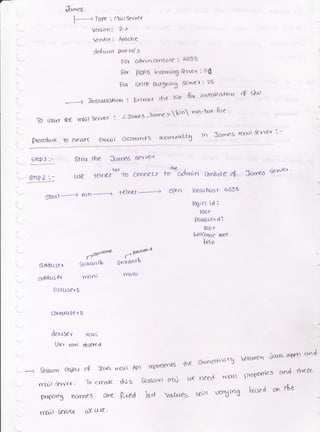 James
Type : Mail Server
version : 2.x
vendor : Apache
default port no's
For admin console : 4555
For POP3 incoming server : 110
For SMTP outgoing server : 25
Installation : Extract the zip for installation of s/w.
To start the mail server : <James_home>\bin\ run.bat file.
Procedure to create email accounts manually in James mail server :-
Step 1 :- Start the James server
Step 2 :- use telnet tool to connect to the admin console of James server.
start → run → telnet → open localhost 4555
login id :
root
Password :
root
welcome root.
help
username password
adduser Srikanth srikanth
adduser mani mani
listusers
countusers
deluser ravi
User ravi deleted
→ Session object of Java mail API represents the connectivity between java appn and
mail server. To create this Session obj we need mail properties and these
property names are fixed but values will varying based on the
mail server we use.